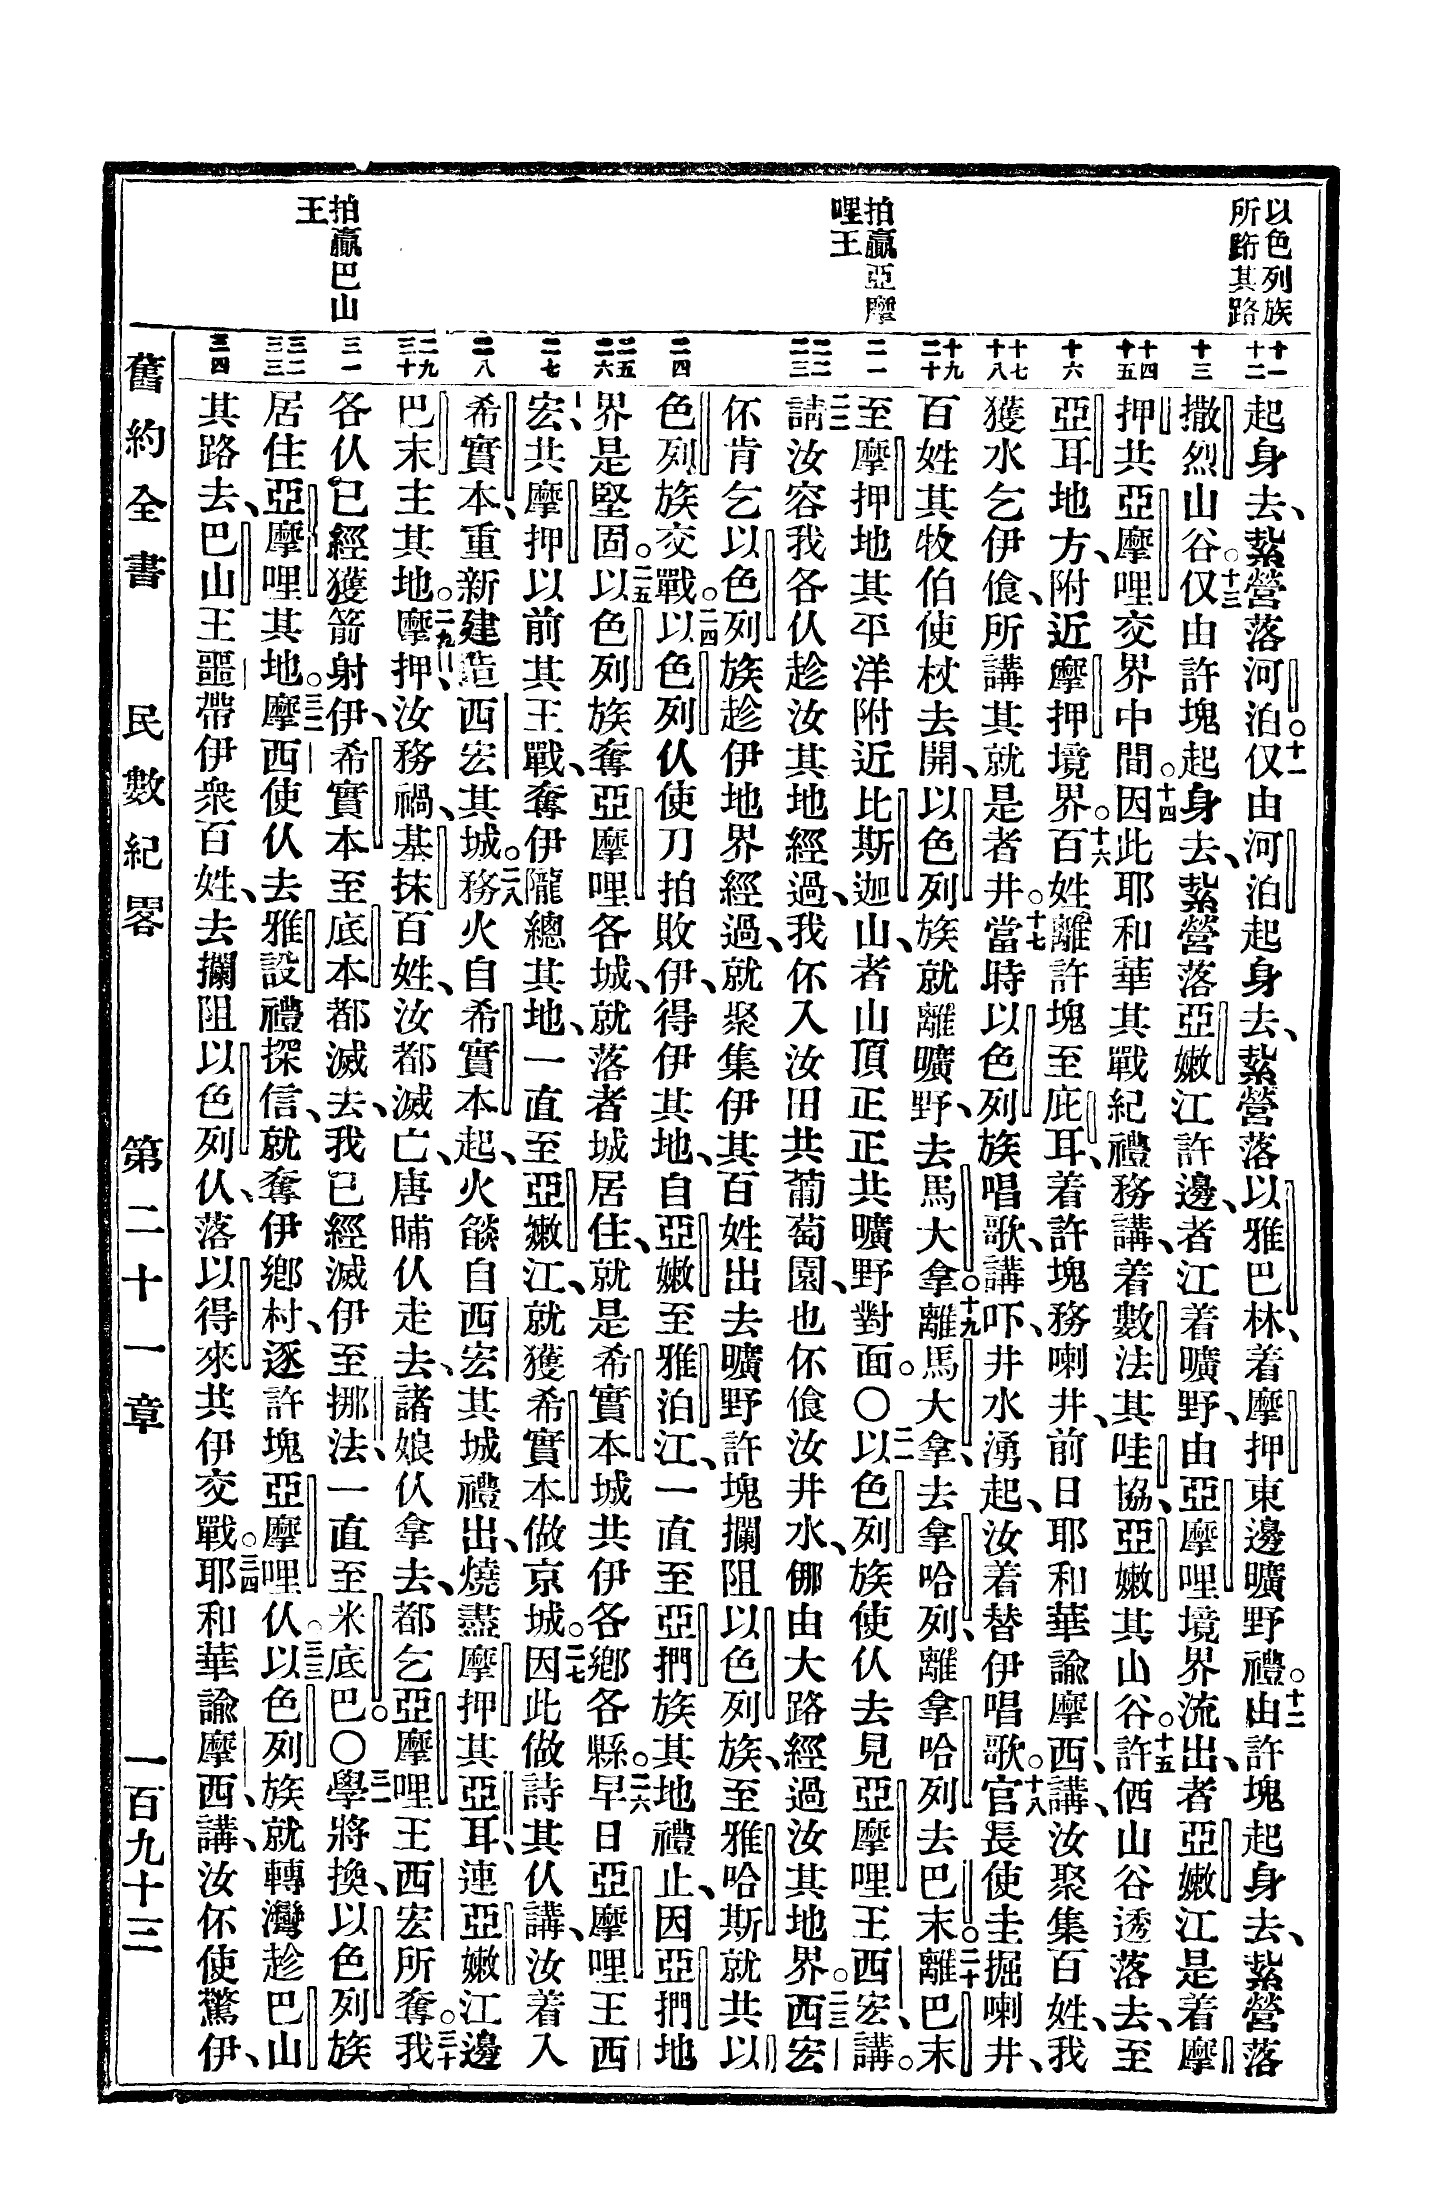 以色列族
所跡其路
拍贏亞摩
哩王
拍贏巴山
王
起身去、紮營落河泊。十一仅由河泊起身去、紮營落以雅巴林、着摩押東邊曠野禮。十二由許塊起身去、紮營落
撒烈山谷。十三仅由許塊起身去、紮營落亞嫩江許邊、者江着曠野、由亞摩哩境界流出、者亞嫩江是着摩
押共亞摩哩交界中間。十四因此耶和華其戰紀禮務講、着數法其哇協、亞嫩其山谷。十五許仴山谷透落去、至
亞耳地方、附近摩押境界。十六百姓離許塊至庇耳、着許塊務喇井、前日耶和華諭摩西、講、汝聚集百姓、我
獲水乞伊飧、所講其就是者井。十七當時以色列族唱歌、講吓、井水湧起、汝着替伊唱歌。十八官長使圭掘喇井、
百姓其牧伯使杖去開、以色列族就離曠野、去馬大拿。十九離馬大拿、去拿哈列、離拿哈列去巴末。二十離巴末
至摩押地其平洋附近比斯迦山、者山頂正正共曠野對面。〇二一以色列族使仈去見亞摩哩王西宏、講。
二二請汝容我各仈趁汝其地經過、我伓入汝田共葡萄園、也伓飧汝井水、㑚由大路經過汝其地界。二三西宏
伓肯乞以色列族趁伊地界經過、就聚集伊其百姓出去曠野許塊攔阻以色列族、至雅哈斯就共以
色列族交戰。二四以色列仈使刀拍敗伊、得伊其地、自亞嫩至雅泊江、一直至亞捫族其地禮止、因亞捫地
界是堅固。二五以色列族奪亞摩哩各城、就落者城居住、就是希實本城共伊各鄉各縣。二六早日亞摩哩王西
宏、共摩押以前其王戰、奪伊隴總其地、一直至亞嫩江、就獲希實本做京城。二七因此做詩其仈講、汝着入
希實本、重新建造西宏其城。二八務火自希實本起、火燄自西宏其城禮出、燒盡摩押其亞耳、連亞嫩江邊
巴末主其地。二九摩押、汝務禍、基抹百姓、汝都滅亡、唐晡仈走去、諸娘仈拿去、都乞亞摩哩王西宏所奪。三十我
各仈已經獲箭射伊、希實本至底本都滅去、我已經滅伊至挪法、一直至米底巴。〇三一學將換、以色列族
居住亞摩哩其地。三二摩西使仈去雅設禮探信、就奪伊鄉村、逐許塊亞摩哩仈。三三以色列族就轉灣趁巴山
其路去、巴山王噩帶伊眾百姓、去攔阻以色列仈、落以得來共伊交戰。三四耶和華諭摩西、講、汝伓使驚伊、
舊約全書　民數紀畧　第二十一章　一百九十三